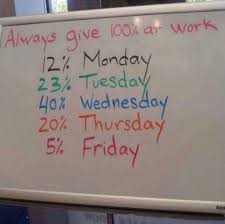 Always give 100% at work
12% Monday
23% Tuesday
40% Wednesday
20% Thursday
5% Friday